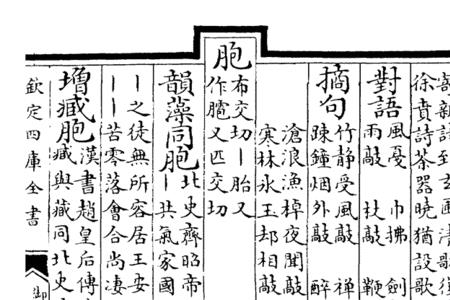 詩到玄圃清歌
徐賁詩茶器曉猶設歌
對語 風戛 巾拂 劍
雨敲 扙敲 鞭
摘句 竹靜受風敲 禪
疎鐘烟外敲 醉
滄浪漁棹夜聞敲
寒林氷玉却相敲
胞 布交切丨胎又
作又匹交切
韻藻同胞 北史齊昭帝
丨共氣家國
丨之徒無所容居王安
丨丨苦零落會合尚凄
增臧胞 漢書趙皇后傳
臧與藏同北史
欽定四庫全書
御